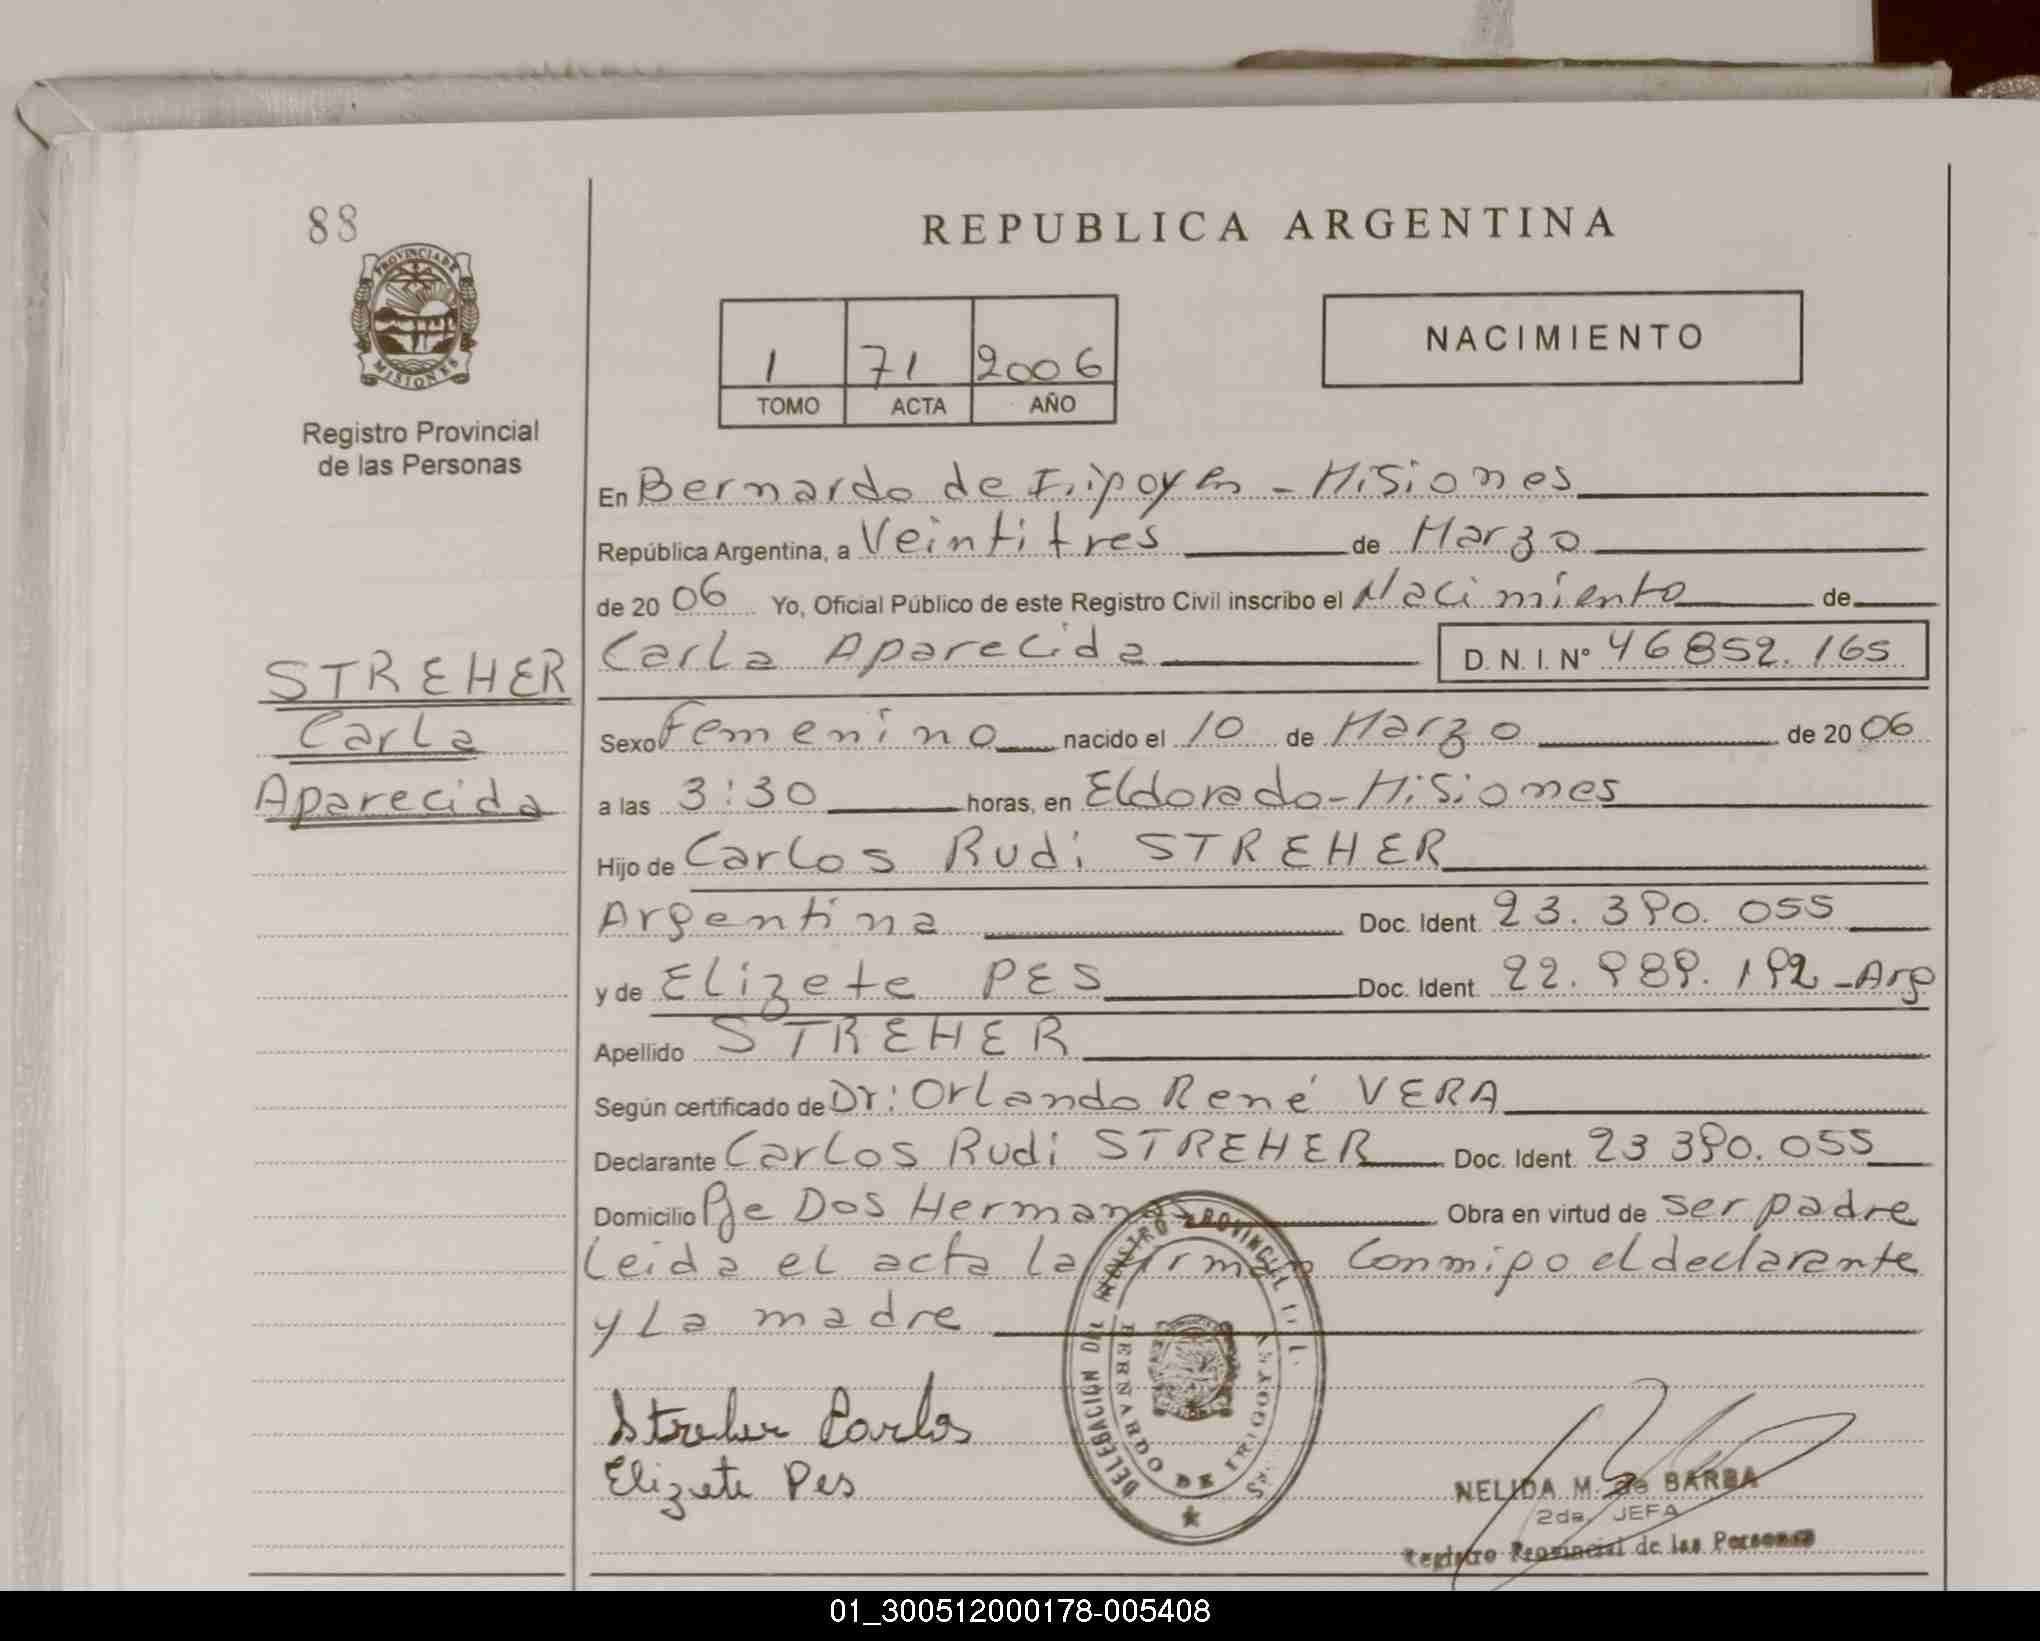 88
PROVINCIA DE
MISIONES
Registro Provincial
de las Personas
STREHER
Carla
Aparecida
REPUBLICA ARGENTINA
1 71 2006
TOMO ACTA AÑO
NACIMIENTO
En Bernardo de Irigoyen - Misiones
República Argentina, a Veintitres de Marzo
de 2006 Yo, Oficial Público de este Registro Civil inscribo el Nacimiento de
Carla Aparecida D. N. I. N° 46852.165
Sexo Femenino nacido el 10 de Marzo de 2006
a las 3:30 horas, en Eldorado - Misiones
Hijo de Carlos Rudi STREHER
Argentina Doc. Ident. 23.390.055
y de Elizete PES Doc. Ident. 22.989.192 - Arg
Apellido STREHER
Según certificado de Dr: Orlando René VERA
Declarante Carlos Rudi STREHER Doc. Ident. 23 390.055
Domicilio Pje Dos Hermanas Obra en virtud de ser padre
Leida el acta la firman conmigo el declarante
y La madre
Streher Carlos
Elizete Pes
DELEGACION DEL REGISTRO PROVINCIAL
BERNARDO DE IRIGOYEN
NELIDA M. de BARBA
2da. JEFA
Registro Provincial de las Personas
01_300512000178-005408